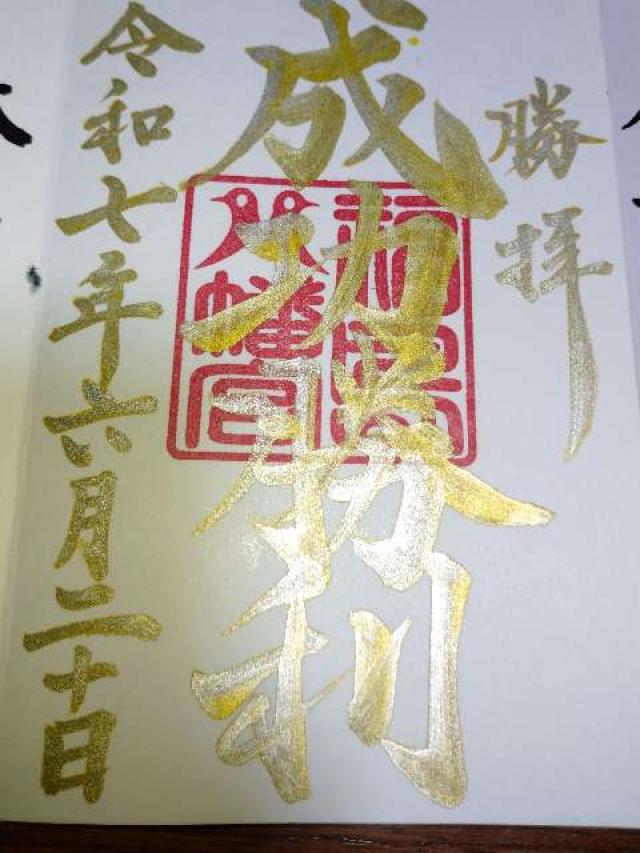 勝拝
成功勝利
八幡宮
令和七年六月二十日